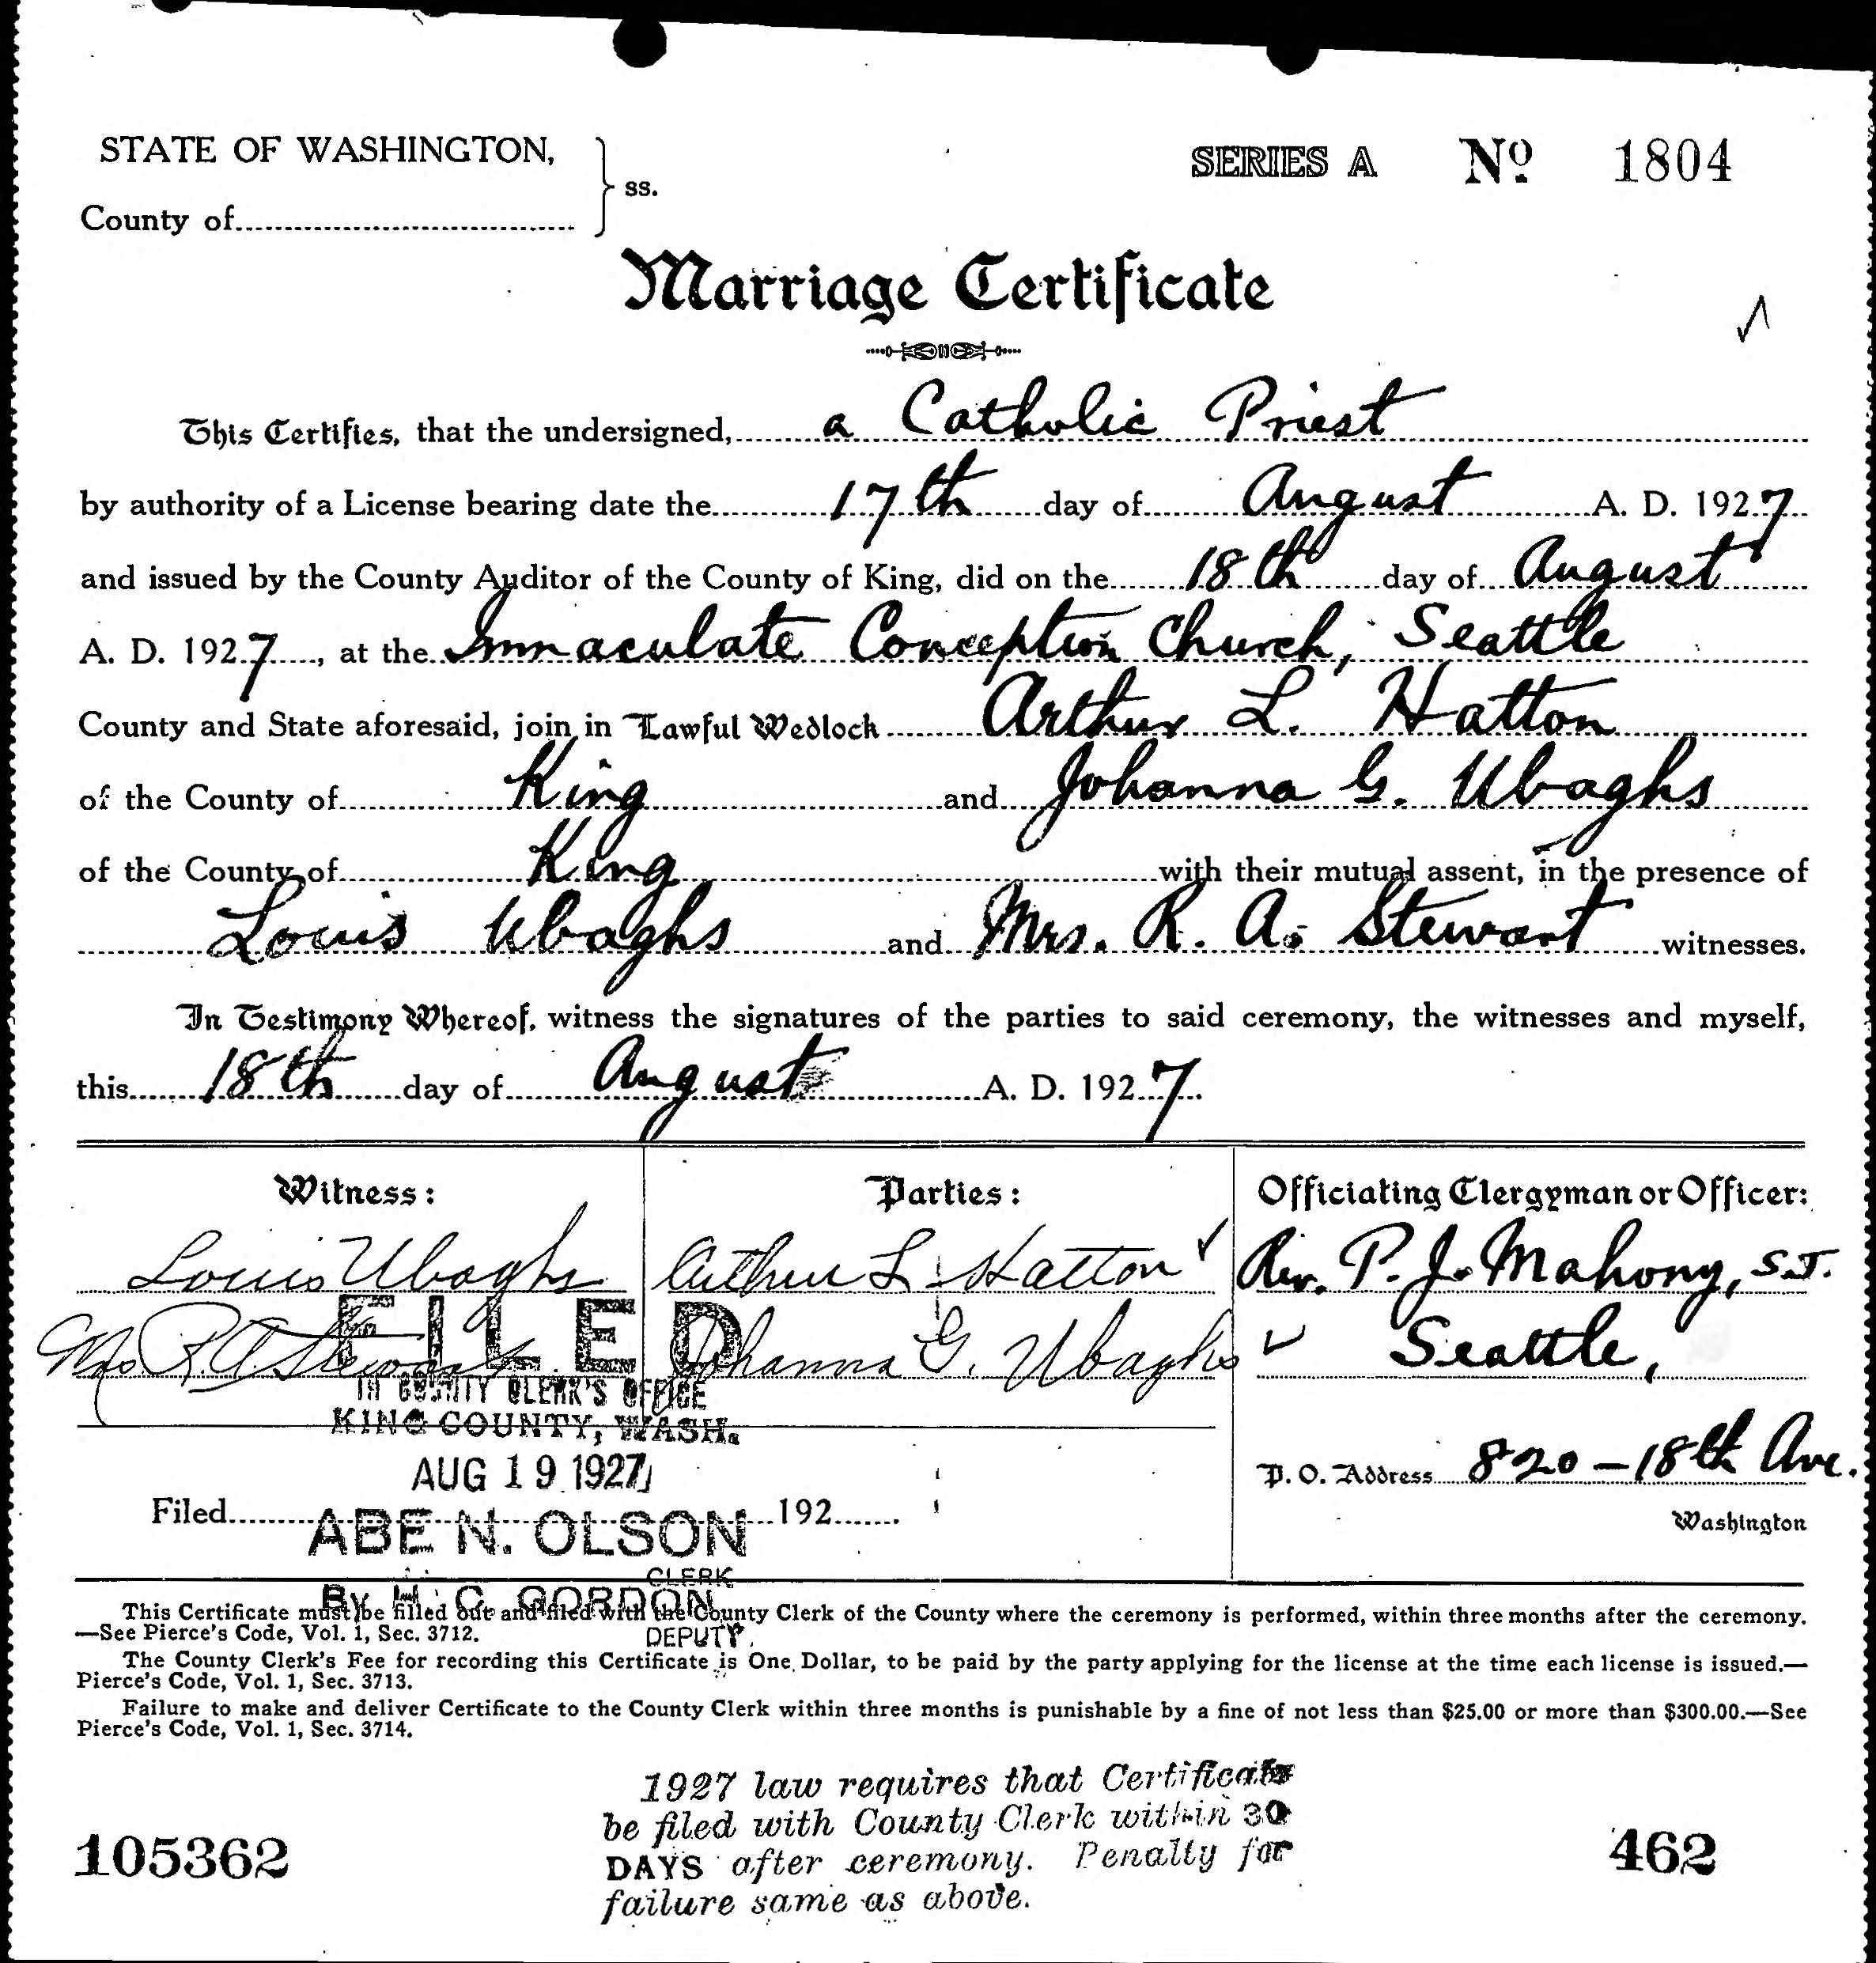 STATE OF WASHINGTON,
ss.
County of
SERIES A No 1804
Marriage Certificate
This Certifies, that the undersigned, a Catholic Priest
by authority of a License bearing date the 17th day of August A. D. 1927
and issued by the County Auditor of the County of King, did on the 18th day of August
A. D. 1927, at the Immaculate Conception Church, Seattle
County and State aforesaid, join in Lawful Wedlock Arthur L. Hatton
of the County of King and Johanna G. Ubaghs
of the County of King with their mutual assent, in the presence of
Louis Ubaghs and Mrs. R. A. Stewart witnesses.
In Testimony Whereof, witness the signatures of the parties to said ceremony, the witnesses and myself,
this 18th day of August A. D. 1927.
Witness:
Louis Ubaghs
Mrs R. A. Stewart
Parties:
Arthur L. Hatton
Johanna G. Ubaghs
Officiating Clergyman or Officer:
Rev. P. J. Mahony, S.J.
Seattle,
P. O. Address 820-18th Ave.
Washington
FILED
IN COUNTY CLERK'S OFFICE
KING COUNTY, WASH.
AUG 19 1927
Filed 192
ABE N. OLSON
CLERK
By H. C. GORDON
DEPUTY.
This Certificate must be filled out and filed with the County Clerk of the County where the ceremony is performed, within three months after the ceremony.
—See Pierce's Code, Vol. 1, Sec. 3712.
The County Clerk's Fee for recording this Certificate is One Dollar, to be paid by the party applying for the license at the time each license is issued.—
Pierce's Code, Vol. 1, Sec. 3713.
Failure to make and deliver Certificate to the County Clerk within three months is punishable by a fine of not less than $25.00 or more than $300.00.—See
Pierce's Code, Vol. 1, Sec. 3714.
1927 law requires that Certificate
be filed with County Clerk within 30
DAYS after ceremony. Penalty for
failure same as above.
105362
462